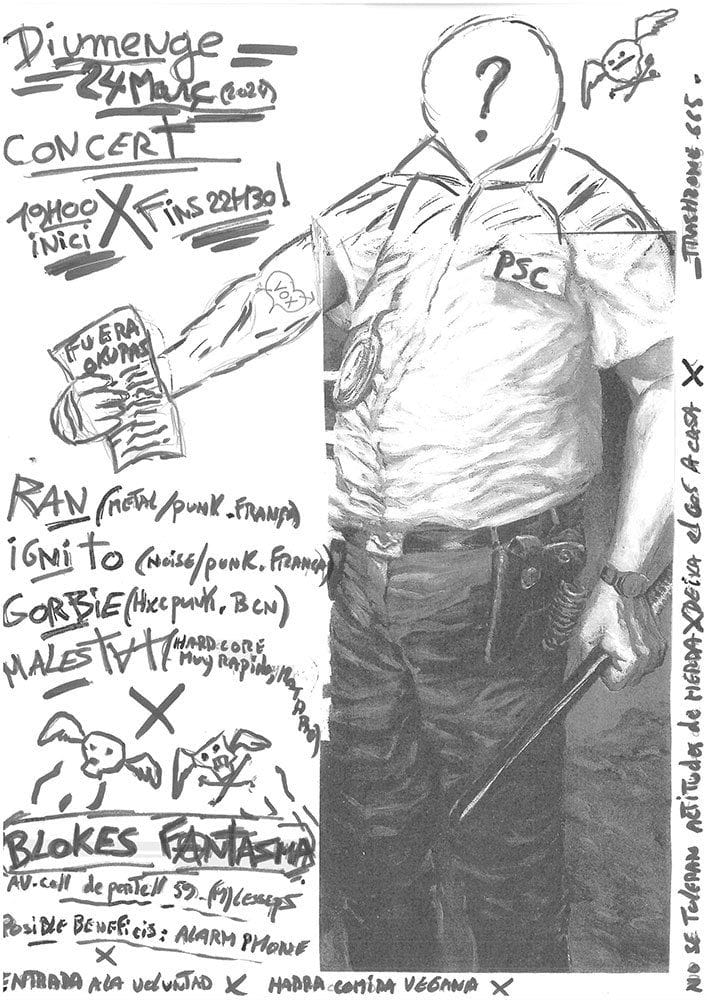 Diumenge
24 Març (2024)
CONCERT
19H00 X Fins 22H30!
inici
?
PSC
VOX
FUERA
OKUPAS
RAN (METAL/PUNK. FRANÇA)
IGNITO (NOISE/PUNK. FRANÇA)
GORBIE (HXC PUNK. BCN)
MALESTAR (HARDCORE
MUY RAPIDO,
X
BLOKES FANTASMA
AV. coll de portell 59. (M) LESSEPS
POSIBLE BENEFICIS: ALARM PHONE
X
ENTRADA A LA VOLUNTAD X HABRA COMIDA VEGANA X
NO SE TOLERAN ACTITUDES de MERDA X DEIXA el GOS A CASA X
TRASHZONE 665.